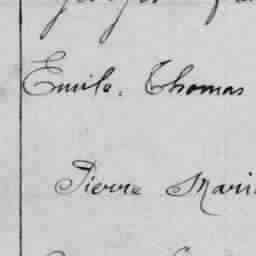 Emile. Thomas
Pierre Mari